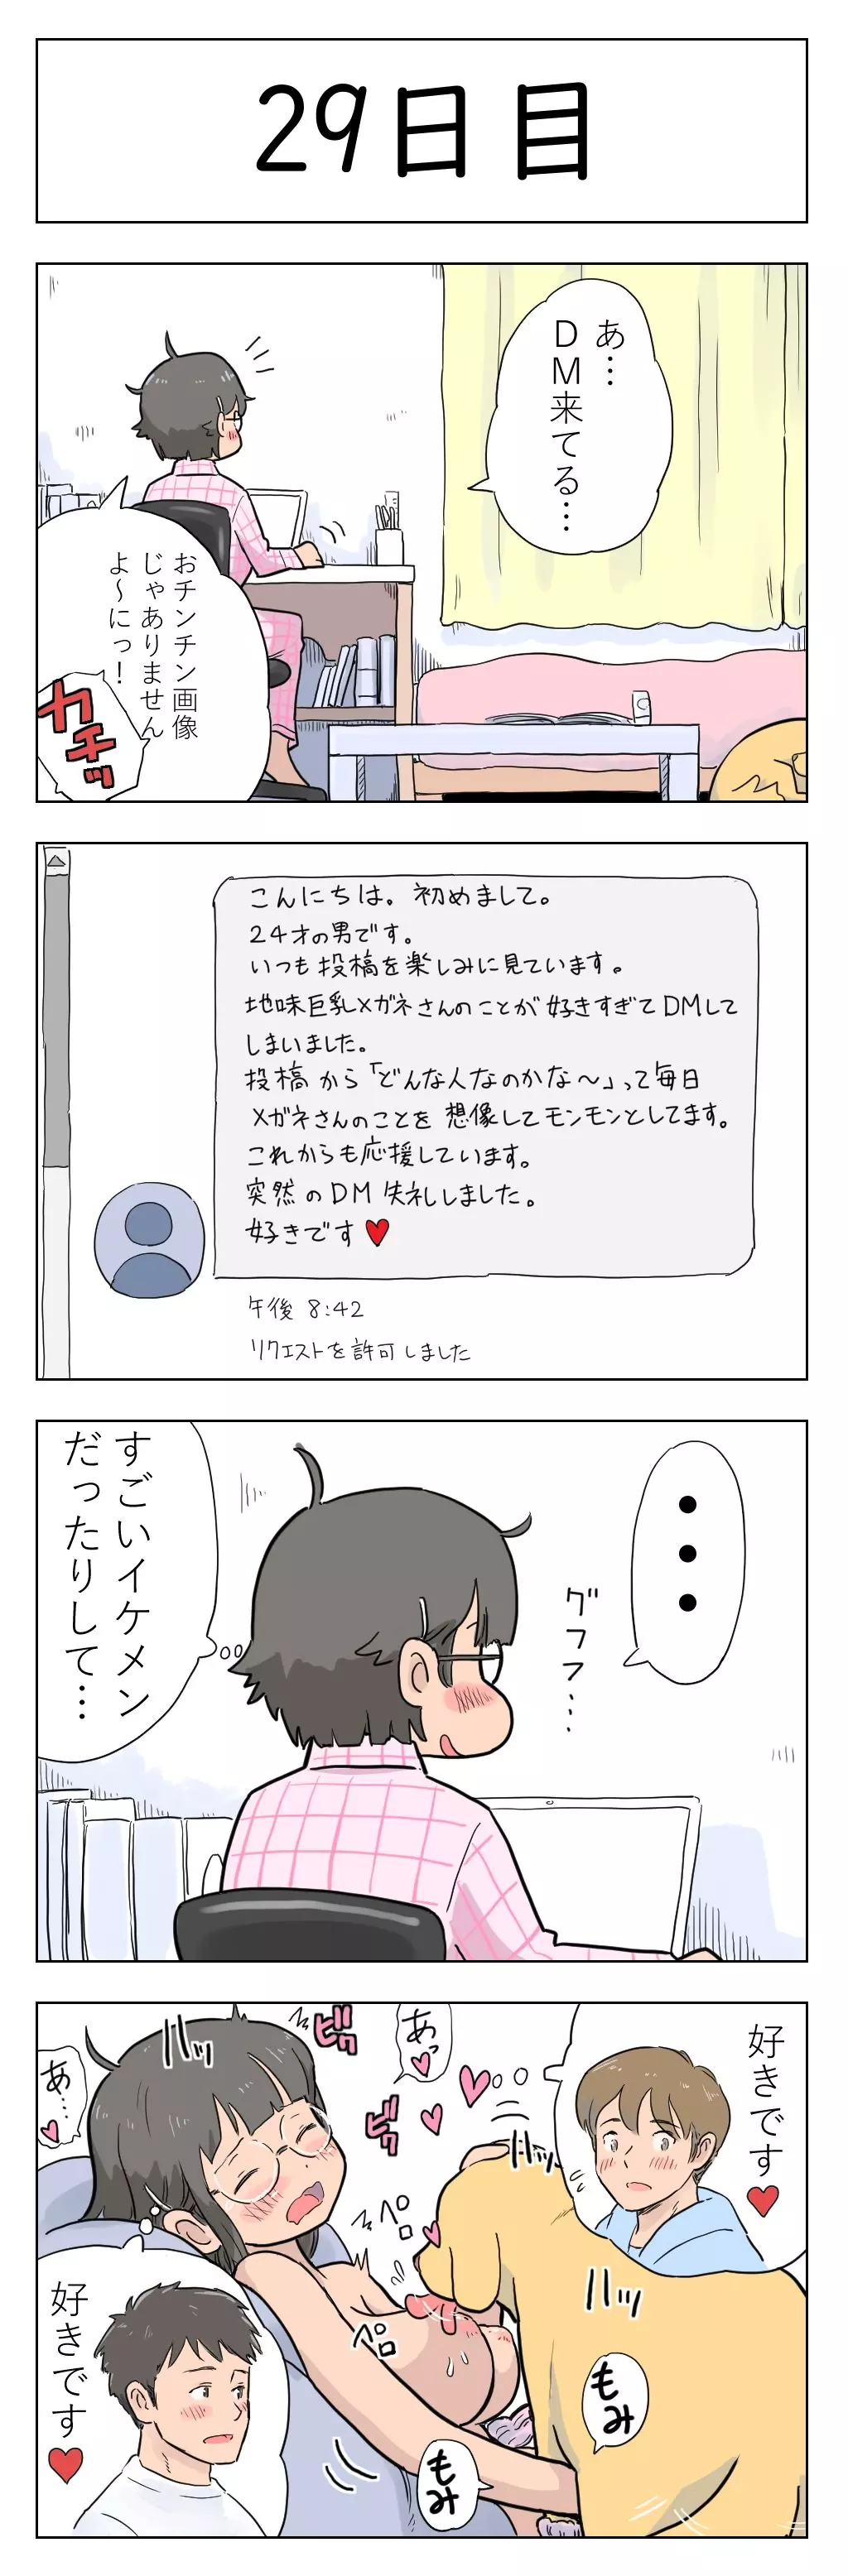 29日目
あ…
DM来てる…
おチンチン画像
じゃありません
よ〜にっ!
カチッ
こんにちは。初めまして。
24才の男です。
いつも投稿を楽しみに見ています。
地味巨乳メガネさんのことが好きすぎてDMして
しまいました。
投稿から「どんな人なのかな〜」って毎日
メガネさんのことを想像してモンモンとしてます。
これからも応援しています。
突然のDM失礼しました。
好きです♥
午後 8:42
リクエストを許可しました
・・・
グフフ…
すごいイケメン
だったりして…
好きです♥
あっ♥
ビク
ハッ
あ…♥
ビク
ハッ
ペロ
ハッ
ペロ
好きです♥
もみ
もみ